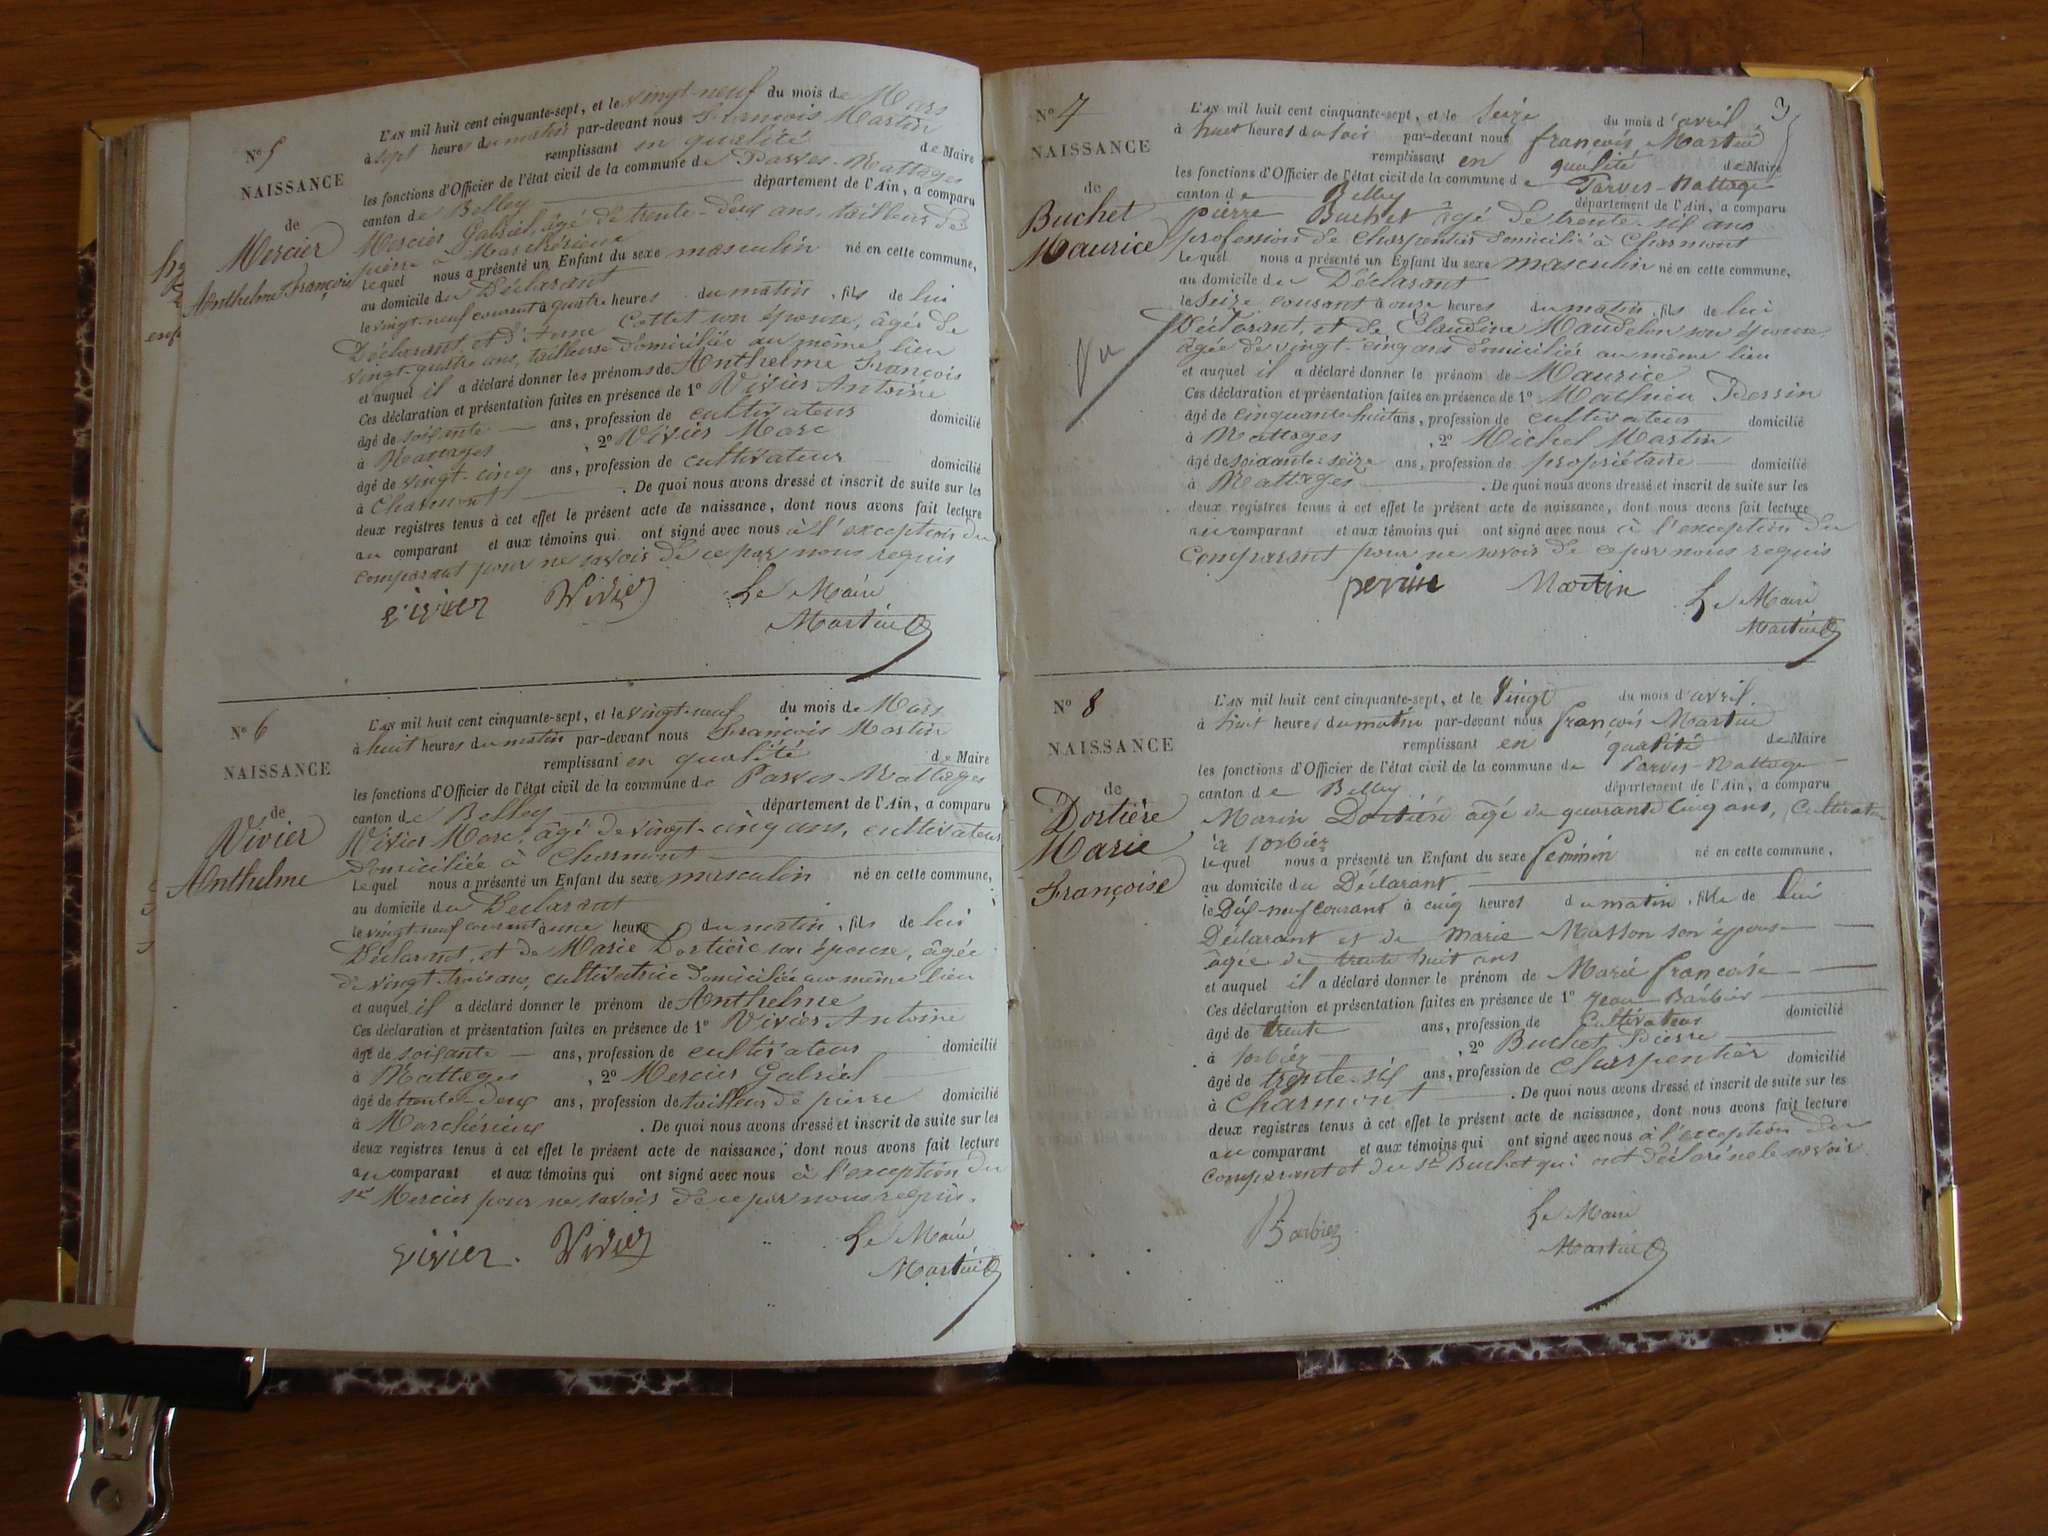 N° 5
NAISSANCE
de
Mercier
Anthelme François
L'AN mil huit cent cinquante-sept, et le vingt-neuf du mois de Mars
à sept heures du matin par-devant nous François Martin
remplissant en qualité de Maire
les fonctions d'Officier de l'état civil de la commune de Parves-Nattages
canton de Belley département de l'Ain, a comparu
Mercier Gabriel, âgé de trente-deux ans, tailleur de
pierre à Marchérieux
Lequel nous a présenté un Enfant du sexe masculin né en cette commune,
au domicile du Déclarant
le vingt-neuf courant à quatre heures du matin, fils de lui
Déclarant, et d'Anne Cottet son épouse, âgée de
vingt-quatre ans, tailleuse domiciliée au même lieu
et auquel il a déclaré donner les prénoms de Anthelme François
Ces déclaration et présentation faites en présence de 1° Vivier Antoine
âgé de soixante ans, profession de cultivateur domicilié
à Nattages , 2° Vivier Marc
âgé de vingt-cinq ans, profession de cultivateur domicilié
à Charmont . De quoi nous avons dressé et inscrit de suite sur les
deux registres tenus à cet effet le présent acte de naissance, dont nous avons fait lecture
au comparant et aux témoins qui ont signé avec nous à l'exception du
comparant pour ne savoir de ce par nous requis
vivier Vivier Le Maire
Martin
N° 6
NAISSANCE
de
Vivier
Anthelme
L'AN mil huit cent cinquante-sept, et le vingt-neuf du mois de Mars
à huit heures du matin par-devant nous François Martin
remplissant en qualité de Maire
les fonctions d'Officier de l'état civil de la commune de Parves-Nattages
canton de Belley département de l'Ain, a comparu
Vivier Marc, âgé de vingt-cinq ans, cultivateur
domiciliée à Charmont
Lequel nous a présenté un Enfant du sexe masculin né en cette commune,
au domicile du Déclarant
le vingt-neuf courant à une heure du matin, fils de lui
Déclarant, et de Marie Dortière son épouse, âgée
de vingt-trois ans, cultivatrice domiciliée au même lieu
et auquel il a déclaré donner le prénom de Anthelme
Ces déclaration et présentation faites en présence de 1° Vivier Antoine
âgé de soixante ans, profession de cultivateur domicilié
à Nattages , 2° Mercier Gabriel
âgé de trente-deux ans, profession de tailleur de pierre domicilié
à Marchérieux . De quoi nous avons dressé et inscrit de suite sur les
deux registres tenus à cet effet le présent acte de naissance, dont nous avons fait lecture
au comparant et aux témoins qui ont signé avec nous à l'exception du
sr Mercier pour ne savoir de ce par nous requis.
vivier. Vivier Le Maire
Martin
3
N° 7
NAISSANCE
de
Buchet
Maurice
Vu
L'AN mil huit cent cinquante-sept, et le Seize du mois d'avril
à huit heures du soir par-devant nous françois Martin
remplissant en qualité de Maire
les fonctions d'Officier de l'état civil de la commune de Parves-Nattage
canton de Belley département de l'Ain, a comparu
pierre Buchet âgé de trente-six ans
profession de charpentier domicilié à Charmont
Lequel nous a présenté un Enfant du sexe masculin né en cette commune,
au domicile du Déclarant
le Seize courant à onze heures du matin, fils de lui
Déclarant, et de Claudine Maudelin son épouse
âgée de vingt-cinq ans domiciliée au même lieu
et auquel il a déclaré donner le prénom de Maurice
Ces déclaration et présentation faites en présence de 1° Mathieu
âgé de cinquante-huit ans, profession de cultivateur domicilié
à Nattages , 2° Michel Martin
âgé de soixante-seize ans, profession de propriétaire domicilié
à Nattages . De quoi nous avons dressé et inscrit de suite sur les
deux registres tenus à cet effet le présent acte de naissance, dont nous avons fait lecture
au comparant et aux témoins qui ont signé avec nous à l'exception du
comparant pour ne savoir de ce par nous requis
Martin Le Maire
Martin
N° 8
NAISSANCE
de
Dortière
Marie
Françoise
L'AN mil huit cent cinquante-sept, et le Vingt du mois d'avril
à huit heures du matin par-devant nous françois Martin
remplissant en qualité de Maire
les fonctions d'Officier de l'état civil de la commune de Parves-Nattage
canton de Belley département de l'Ain, a comparu
Marin Dortière âgé de quarante cinq ans, Cultivateur
à Sorbiez
Lequel nous a présenté un Enfant du sexe féminin né en cette commune,
au domicile du Déclarant
le Dix-neuf courant à cinq heures du matin, fille de Lui
Déclarant et de Marie Masson son épouse
âgée de trente huit ans
et auquel il a déclaré donner le prénom de Marie françoise
Ces déclaration et présentation faites en présence de 1° Jean Barbier
âgé de trente ans, profession de Cultivateur domicilié
à Sorbiez , 2° Buchet Pierre
âgé de trente-six ans, profession de Charpentier domicilié
à Charmont . De quoi nous avons dressé et inscrit de suite sur les
deux registres tenus à cet effet le présent acte de naissance, dont nous avons fait lecture
au comparant et aux témoins qui ont signé avec nous à l'exception du
comparant et du sr Buchet qui ont déclaré ne le savoir.
Barbiez Le Maire
Martin